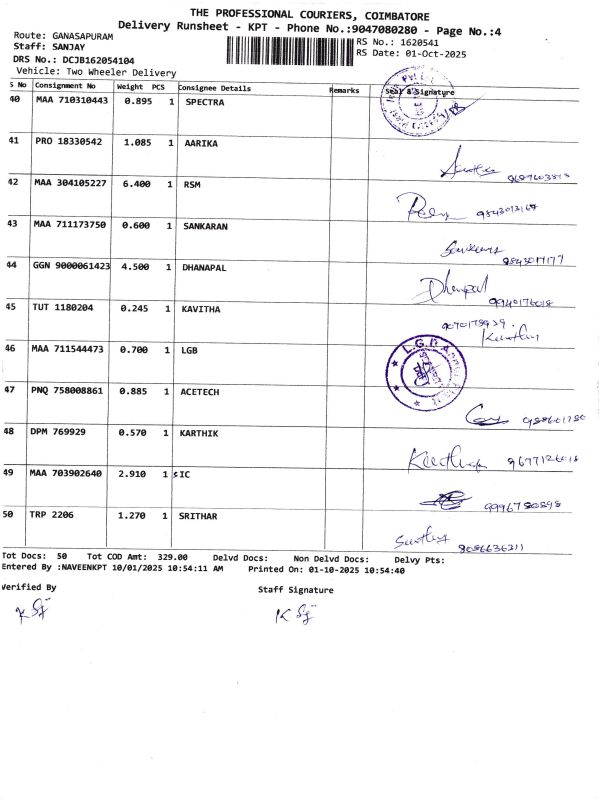 THE PROFESSIONAL COURIERS, COIMBATORE
Delivery Runsheet - KPT - Phone No.:9047080280 - Page No.:4
Route: GANASAPURAM
RS No.: 1620541
Staff: SANJAY
RS Date: 01-Oct-2025
DRS No.: DCJB162054104
Vehicle: Two Wheeler Delivery
S No Consignment No Weight PCS Consignee Details Remarks Seal & Signature
40 MAA 710310443 0.895 1 SPECTRA
41 PRO 18330542 1.085 1 AARIKA
42 MAA 304105227 6.400 1 RSM 9843013168
43 MAA 711173750 0.600 1 SANKARAN
44 GGN 9000061423 4.500 1 DHANAPAL Dhanapal 9940176018
45 TUT 1180204 0.245 1 KAVITHA
46 MAA 711544473 0.700 1 LGB
47 PNQ 758008861 0.885 1 ACETECH
48 DPM 769929 0.570 1 KARTHIK 9677126018
49 MAA 703902640 2.910 1 SIC 9996780898
50 TRP 2206 1.270 1 SRITHAR 8086636311
Tot Docs: 50 Tot COD Amt: 329.00 Delvd Docs: Non Delvd Docs: Delvy Pts:
Entered By :NAVEENKPT 10/01/2025 10:54:11 AM Printed On: 01-10-2025 10:54:40
Verified By Staff Signature